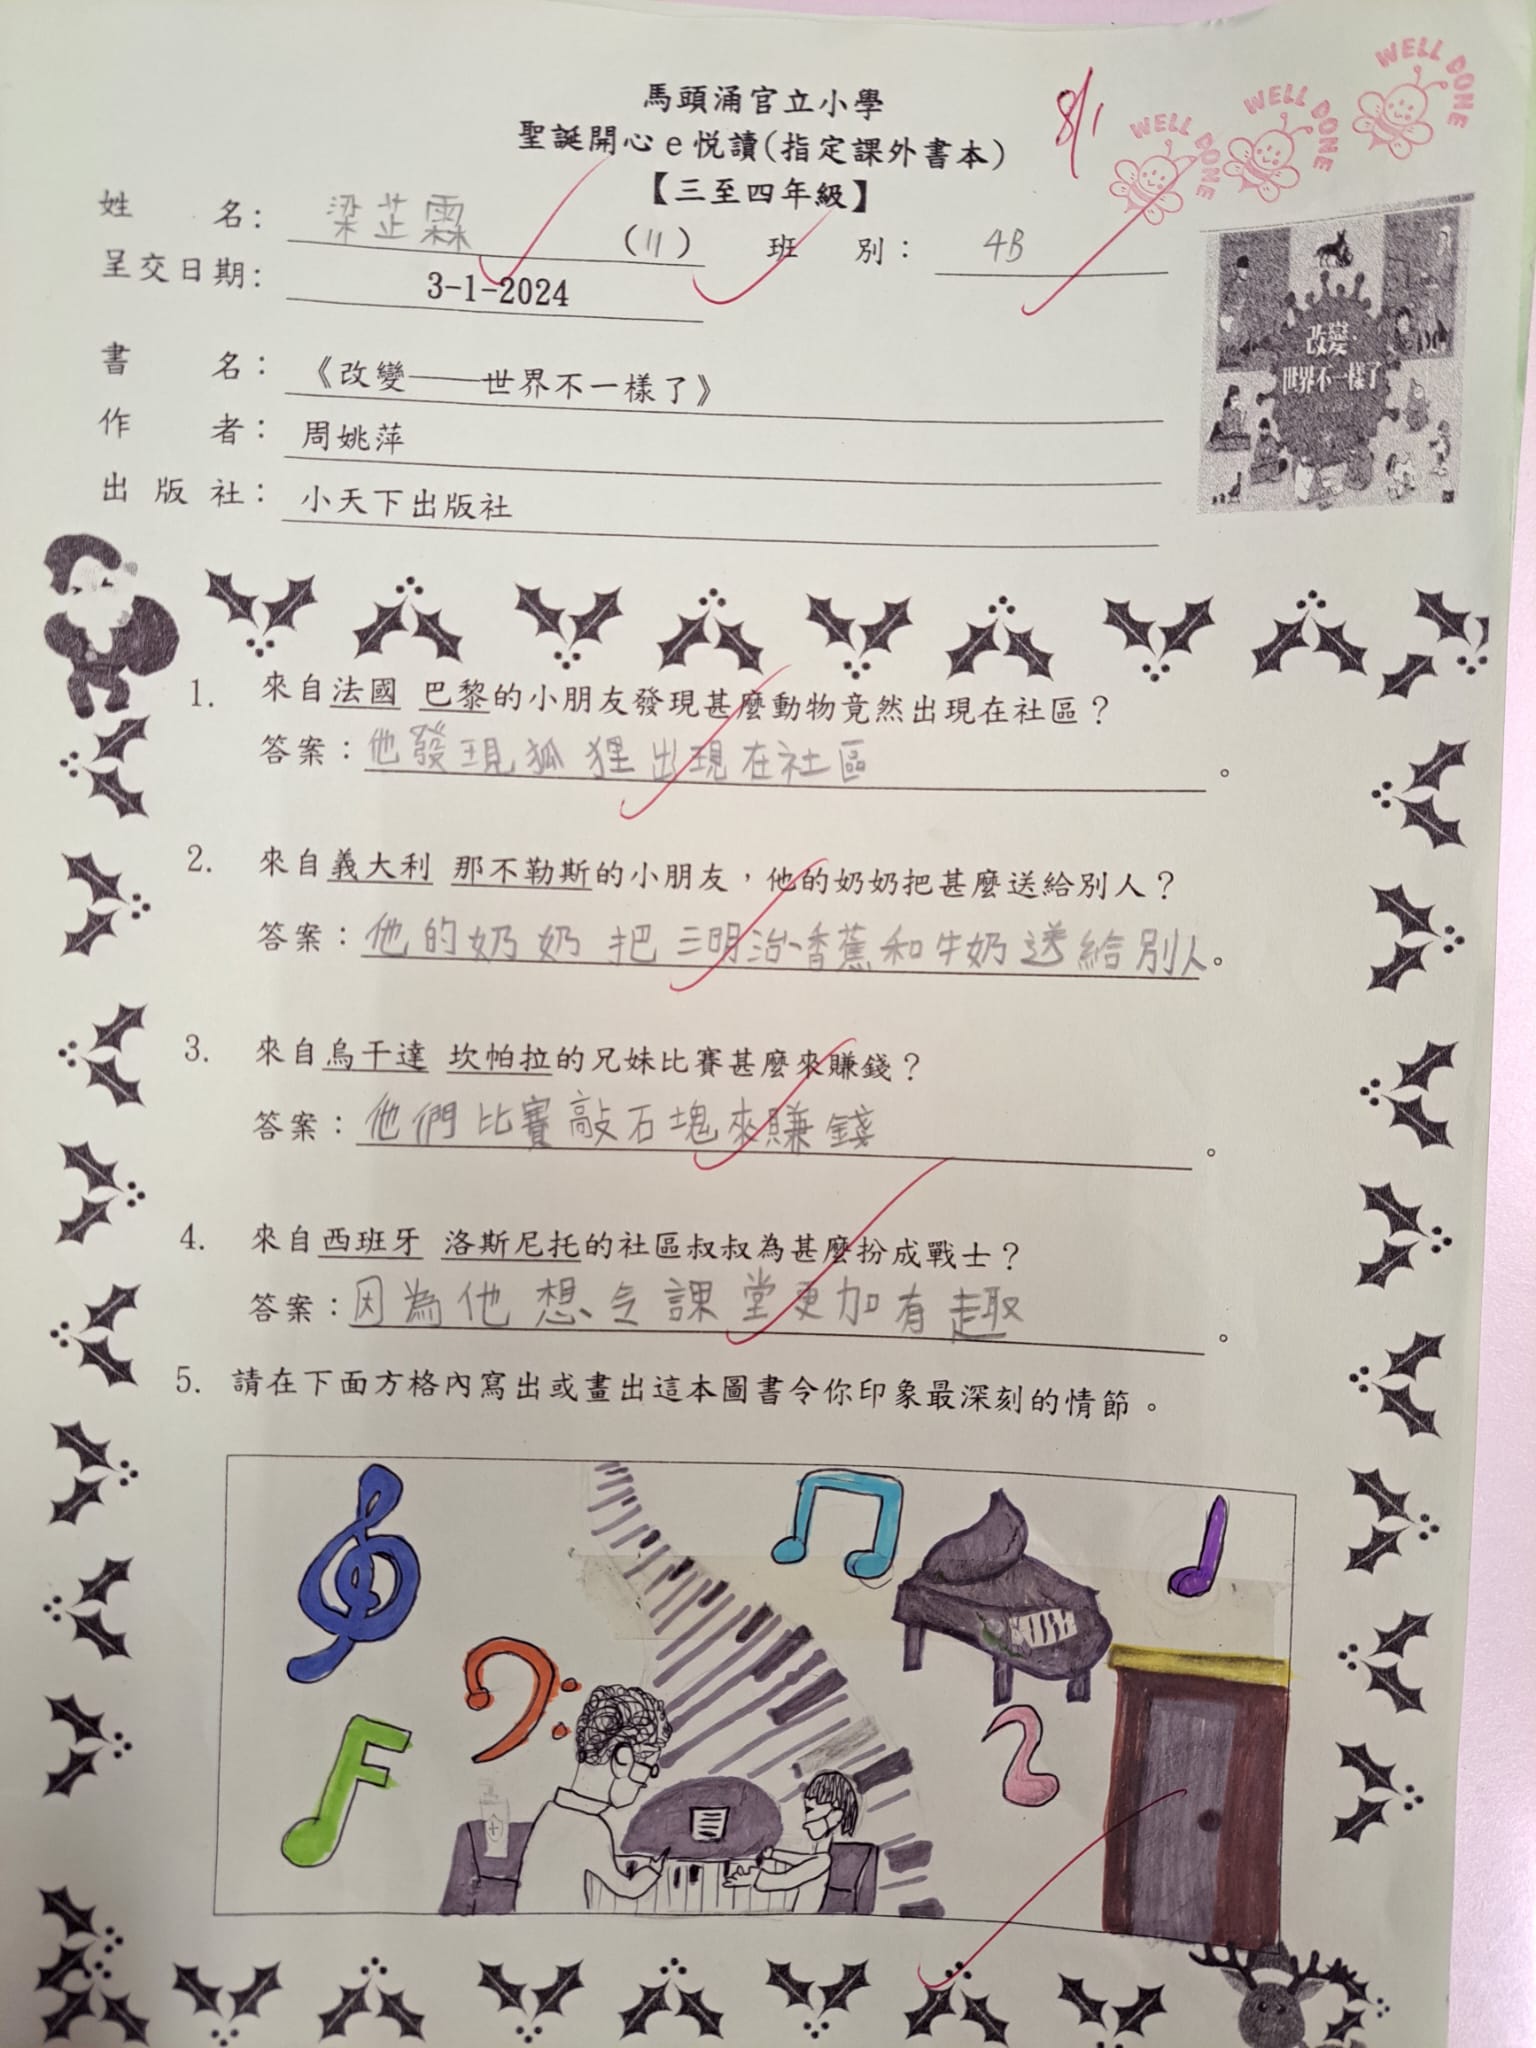 馬頭涌官立小學
聖誕開心e悅讀(指定課外書本)
【三至四年級】
8/1
WELL DONE
WELL DONE
WELL DONE
姓 名: 梁芷霖 (11) 班 別: 4B
呈交日期: 3-1-2024
書 名: 《改變——世界不一樣了》
作 者: 周姚萍
出版社: 小天下出版社
改變‧
世界不一樣了
1. 來自法國 巴黎的小朋友發現甚麼動物竟然出現在社區?
答案:他發現狐狸出現在社區。
2. 來自義大利 那不勒斯的小朋友,他的奶奶把甚麼送給別人?
答案:他的奶奶把三明治、香蕉和牛奶送給別人。
3. 來自烏干達 坎帕拉的兄妹比賽甚麼來賺錢?
答案:他們比賽敲石塊來賺錢。
4. 來自西班牙 洛斯尼托的社區叔叔為甚麼扮成戰士?
答案:因為他想令課堂更加有趣。
5. 請在下面方格內寫出或畫出這本圖書令你印象最深刻的情節。